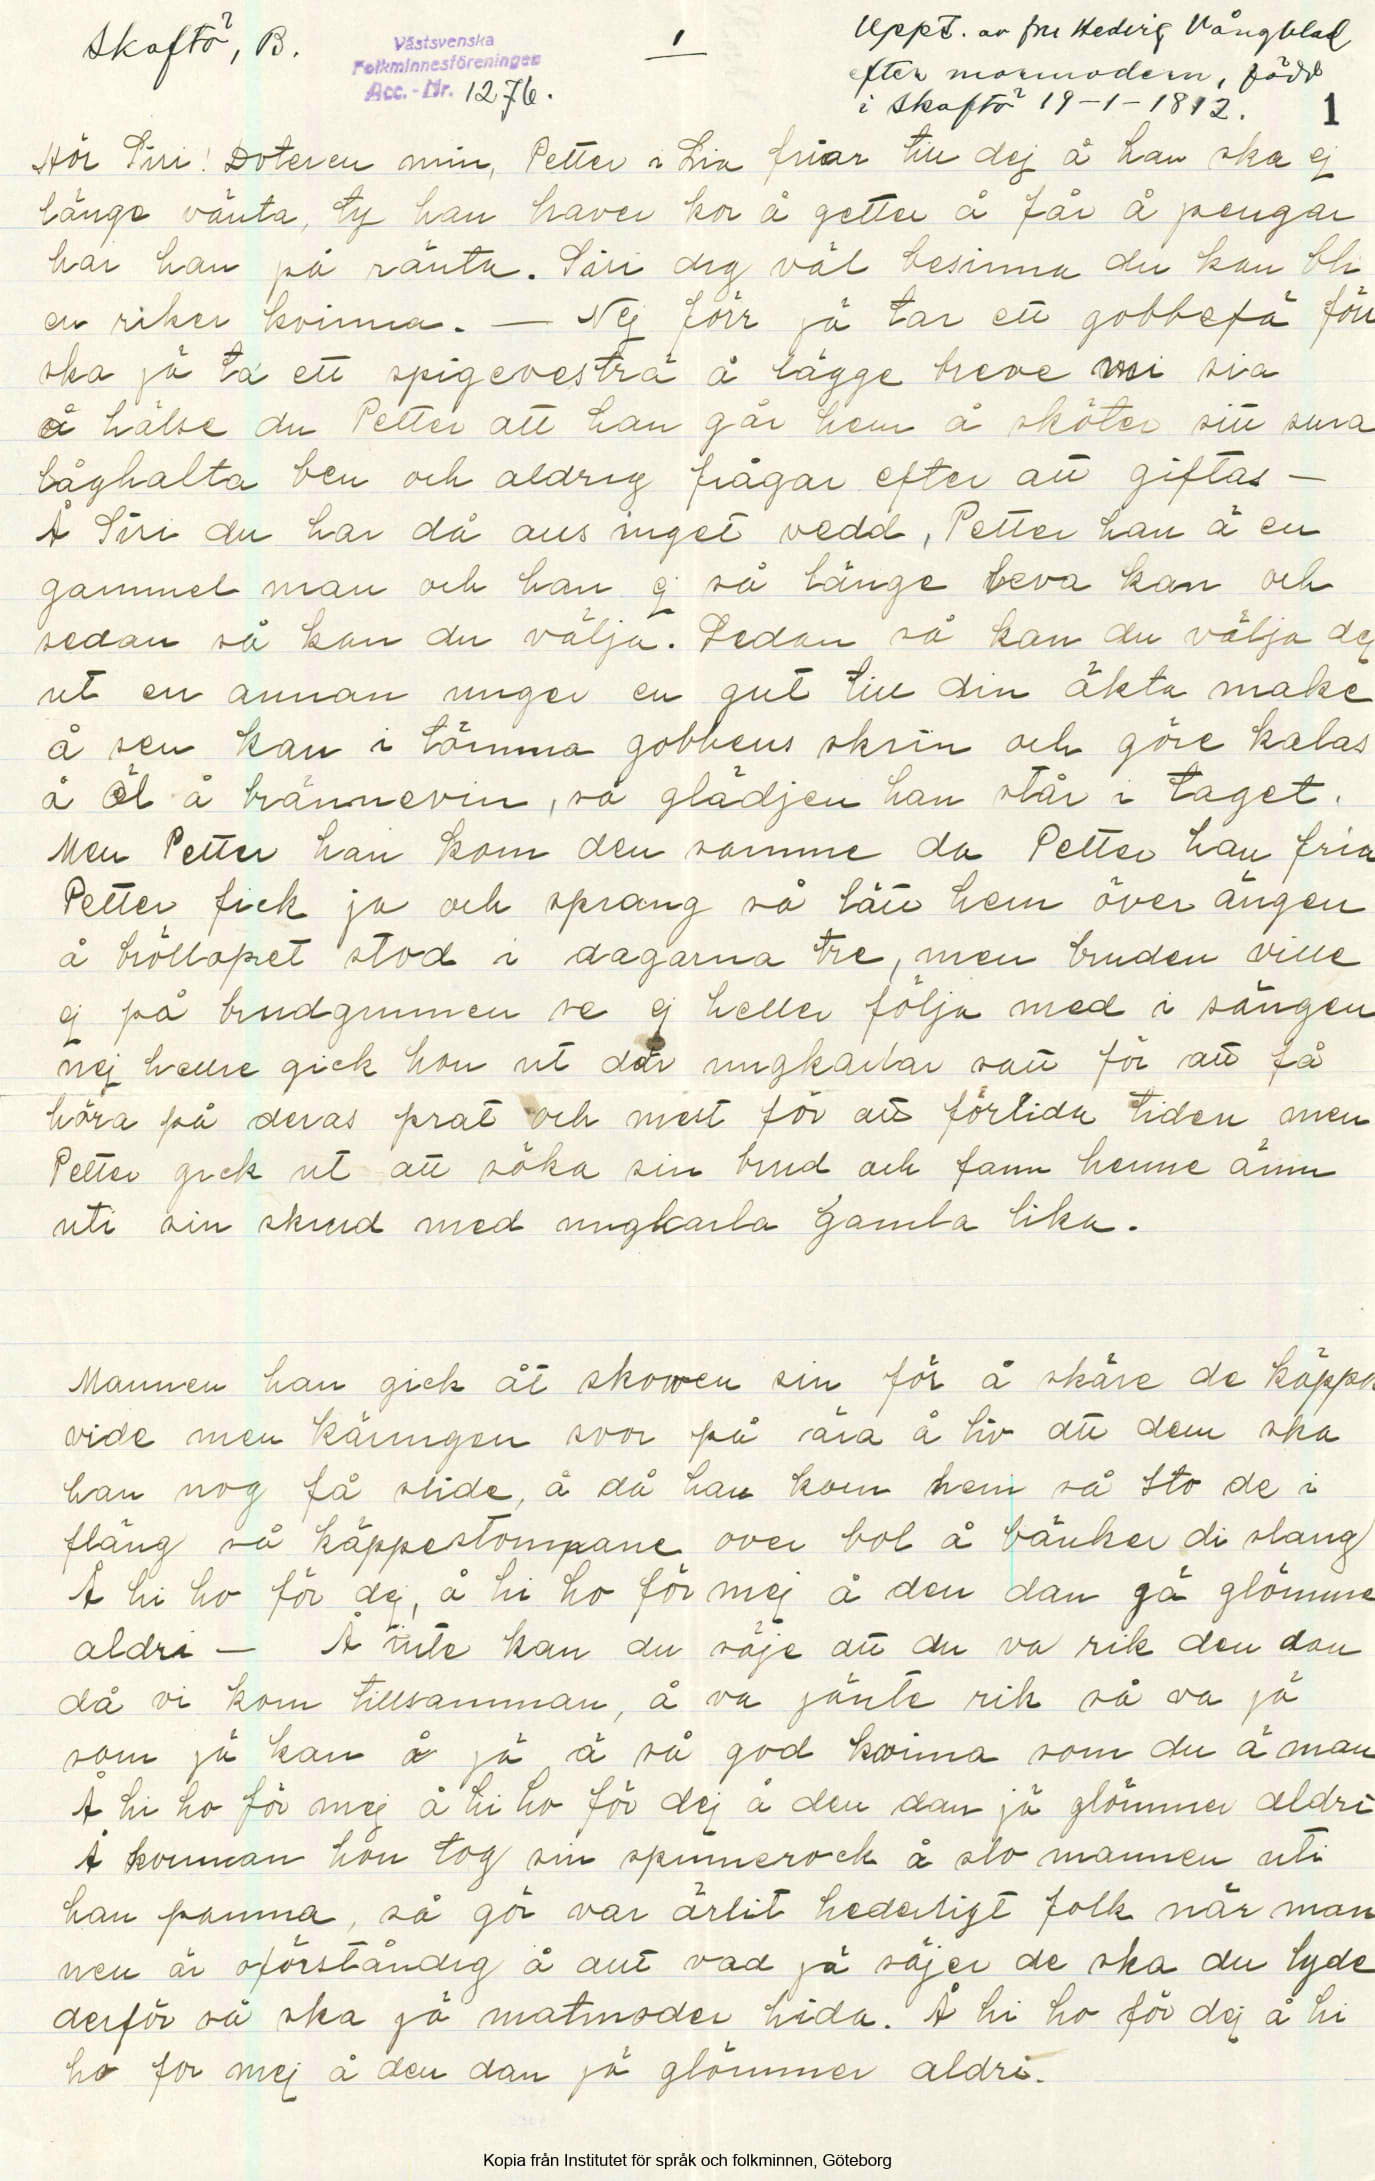 Skaftö, B.
Västsvenska
Folkminnesföreningen
Acc. - Nr. 1276.
1
Uppt. av fru Hedvig Vångblad
efter mormodern, född
i Skaftö 19-1-1812.
1
Hör Siri! Doteren min, Petter i Lia friar till dej å han ska ej
länge vänta, ty han haver kor å getter å får å pengar
har han på ränta. Siri dig väl besinna du kan bli
en riker kvinna. — Nej förr jä tar ett gobbefä förr
ska jä ta ett spigevesträ å lägge breve mi sia
å hälse du Petter att han går hem å sköter sitt sura
låghalta ben och aldrig frågar efter att giftas —
Å Siri du har då aus inget vedd, Petter han ä en
gammel man och han ej så länge leva kan och
sedan så kan du välja. Sedan så kan du välja dej
ut en annan unger en gut till din äkta make
å sen kan i tömma gobbens skrin och göre kalas
å öl å brännevin, så glädjen han står i taget.
Men Petter han kom den samme da Petter han fria
Petter fick ja och sprang så lätt hem över ängen
å bröllopet stod i dagarna tre, men bruden ville
ej på brudgummen se ej heller följa med i sängen
nej hellre gick hon ut där ungkarlar satt för att få
höra på deras prat och mest för att förlida tiden men
Petter gick ut att söka sin brud och fann henne ännu
uti sin skrud med ungkarla gamla lika.
Mannen han gick åt skowen sin för å skäre de käppa
vide men käringen svor på ära å liv att dem ska
han nog få slide, å då han kom hem så sto de i
fläng så käppestompane over bol å bänker di slang
Å hi ho för dej, å hi ho för mej å den dan gä glömme
aldri — Å inte kan du säje att du va rik den dan
då vi kom tillsamman, å va jänte rik så va jä
som jä kan å jä ä så god kvinna som du ä man
Å hi ho för mej å hi ho för dej å den dan jä glömmer aldri
Å konnan hon tog sin spinnerock å slo mannen uti
han panna, så gör var ärlit hederligt folk när man
nen är oförståndig å aut vad jä säjer de ska du lyde
derför så ska jä matmoder hida. Å hi ho för dej å hi
ho for mej å den dan jä glömmer aldri.
Kopia från Institutet för språk och folkminnen, Göteborg